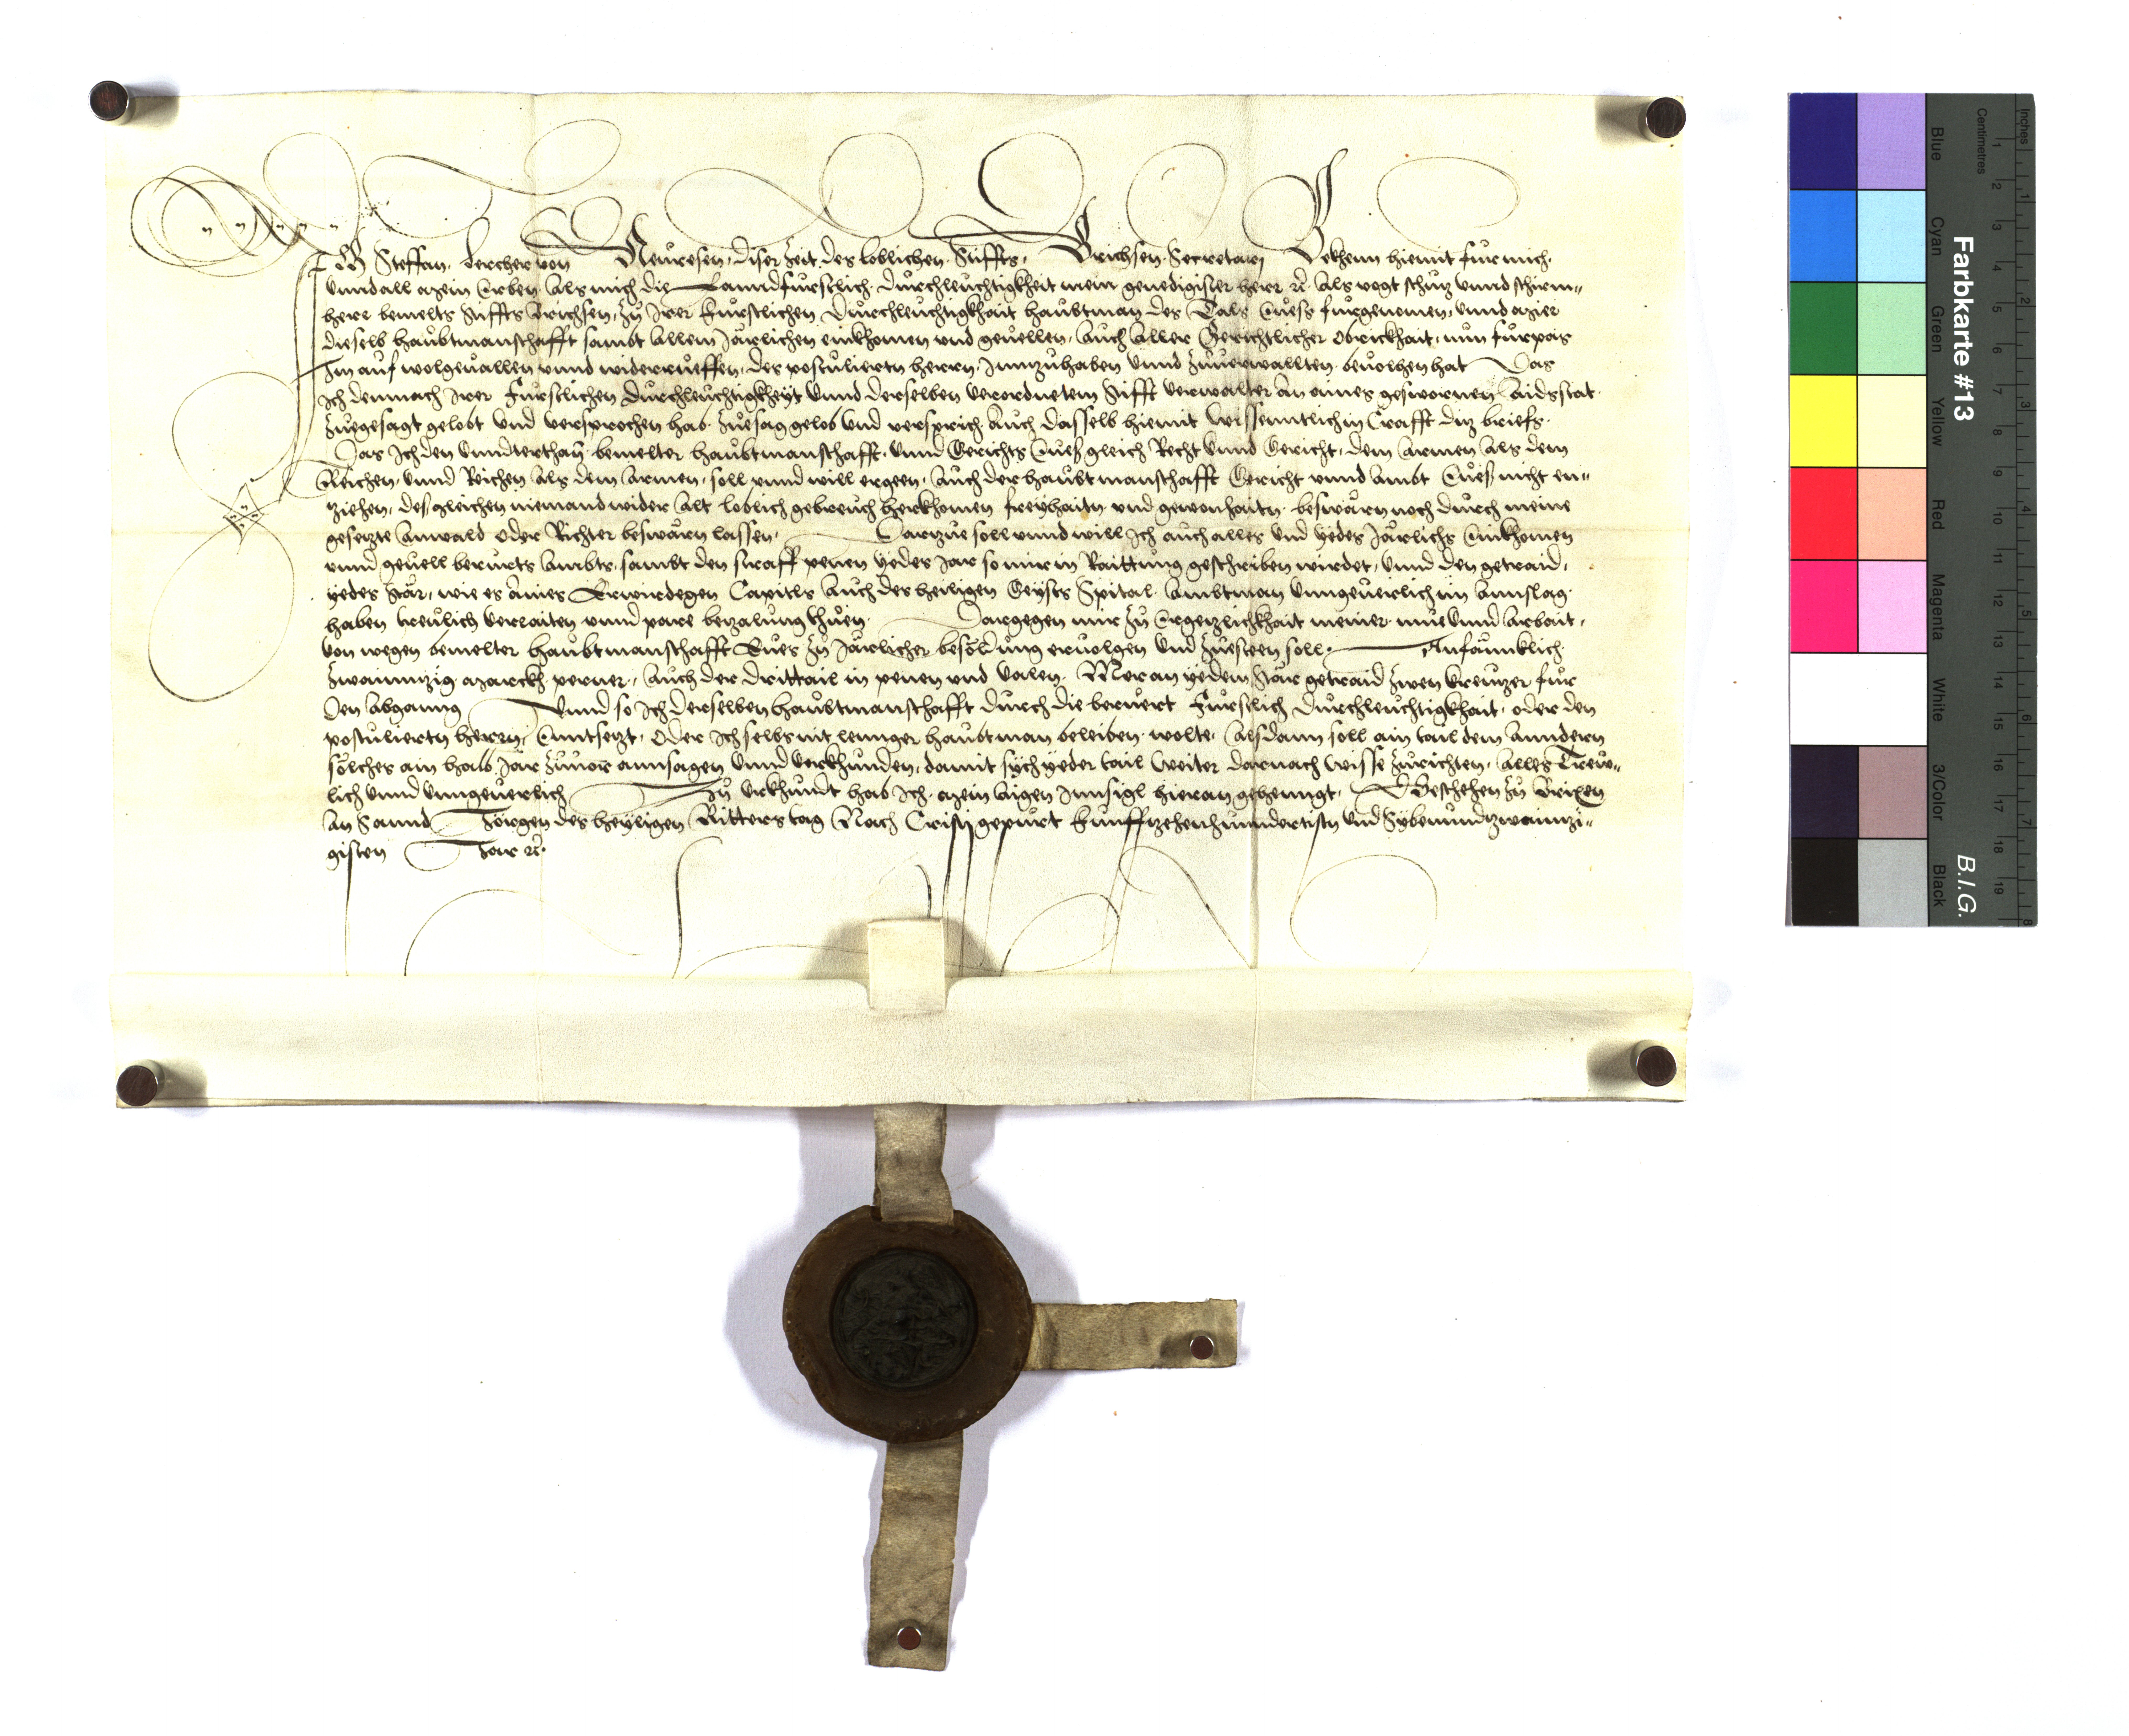 Ich Steffan Lercher von Neuresen, diser Zeit des loblichen Stiffts Brichsen Secretarj Bekhenn hiemit fur mich
vnnd all mein Erben. Als mich die Lanndfurstlich Durchleuchtigkheit mein genedigister herr etc. Als vogt schutz vnnd schirm„
herr bemelts Stiffts Brichsen, zu Irer Furstlichen Durchleuchtigkhait haubtman des Tals Eues furgenomen, vnnd mier
dieselb haubtmanschafft sambt allem Järlichen einkhomen vnd geuellen, Auch Aller Gerichtlicher Obrickhait, nun furpas
Im auf wolgeuallen vnnd widerrueffen, des postuliertn herrn, Innzuhaben vnnd zuuerwallten beuolhen hat Das
Ich demnach Irer Furstlichen Durchleuchtigkheyt vnnd derselben verordnetem Stifft verwalter An aines geswornen Aidsstat
zuegesagt gelobt vnd versprochen hab, zuesag gelob vnd versprich Auch dasselb hiemit Wissenntlich in Crafft ditz briefs.
Das Ich den vnnderthan bemelter haubtmanschafft, vnnd Gerichts Eues gleich Recht vnnd Gericht, dem Armen Als dem
Reichen, vnnd Reichen Als dem Armen, soll vnnd will ergeen, Auch der haubtmanschafft Gericht vnnd Ambt Eues nicht en„
tziehen, desgleichen niemand wider Alt loblich gebreuch herkhomen freyhaitn vnd gewonhaitn beswärn noch durch meine
gesetzte Anwald Oder Richter beswärn lassen. Dartzue soll vnnd will Ich auch alles vnd yedes Järlichs Einkhomen
vnnd geuell berurts Ambts, sambt den straff penen yedes Jar so mir in Raittung geschriben wirdet, vnnd den getraid,
yedes Stär, wie es Aines Erwirdegen Capitls Auch des heiligen Geysts Spital Ambtman vngeuerlich im Annslag
haben treulich verraiten vnnd pare betzalung thuen. Dargegen mir zu Ergetzlichkhait meiner mue vnnd Arbait,
Von wegen bemelter haubtmanschafft Eues zu Järlicher besoldung eruolgen vnd zuesteen soll. Anfäncklich
zwainntzig marckh perner, Auch der drittail in penen vnd välen. Mer an yedem Stär getraid zwen kreutzer fur
den Abgang Vnnd so Ich derselben haubtmanschafft durch die beruert Furstlich Durchleuchtigkhait, oder den
postuliertn herrn Enntsetzt, Oder Ich selbs nit lennger haubtman beleiben wolte, Alsdann soll ain tail dem Anndern
solches ain halb Jar zuuor annsagen vnnd verkhunden, damit sych yeder tail weiter darnach Wisse zurichten, Alles Trew„
lich vnnd vnngeuerlich Zu vrkhundt hab Ich mein Aigen Innsigl hieran gehenngt, Beschehen zu Brixen
An Sannd Jörgen des heyligen Ritters tag Nach Cristj gepurt Funfftzehenhunndertistn vnd Sybenundtzwaintzi„
gisten Jar etc.
Farbkarte #13
B.I.G.
Inches
Centimetres
Blue
Cyan
Green
Yellow
Red
Magenta
White
3/Color
Black
1 2 3 4 5 6 7 8 9 10 11 12 13 14 15 16 17 18 19
1 2 3 4 5 6 7 8